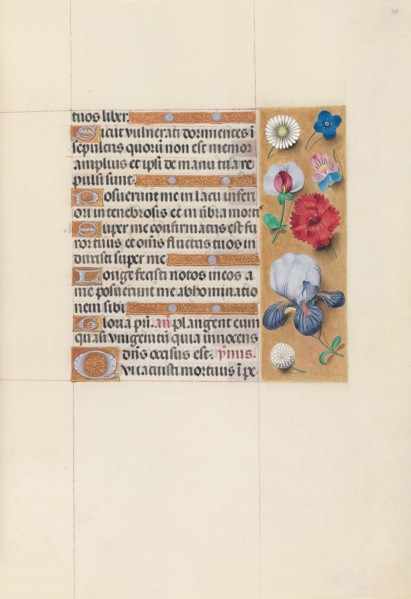 tuos liber.
Sicut vulnerati dormientes i
sepulcris quorū non est memor
amplius et ipsi de manu tua re
pulsi sunt.
Posuerunt me in lacu inferi
ori in tenebrosis et in ūbra mort
Super me confirmatus est fu
ror tuus et oīns fluctus tuos in
duxisti super me
Longe fecisti notos meos a
me posuerunt me abhominatio
nem sibi
Gloria pri. añ. plangent eum
quasi vnigenitū quia innocens
dñs occisus est. p̄mus.
Qui tacuisti mortuus i pe